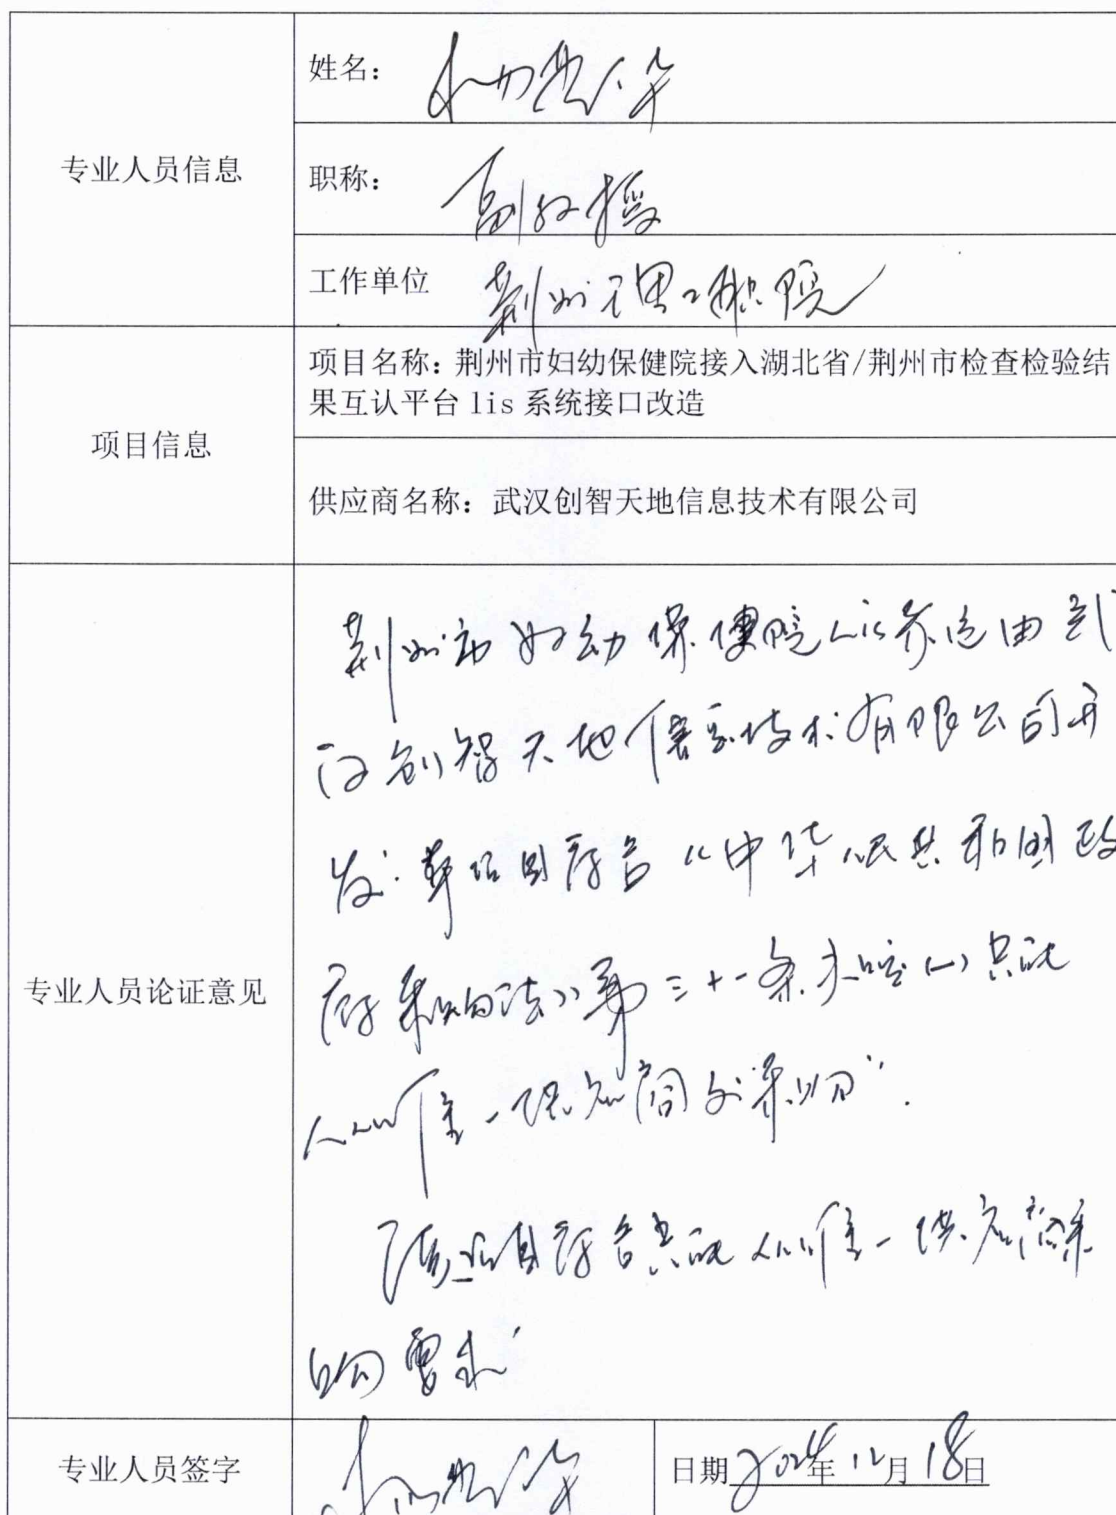 专业人员信息
姓名：
职称：副教授
工作单位 荆州理工职院
项目信息
项目名称：荆州市妇幼保健院接入湖北省/荆州市检查检验结
果互认平台 lis 系统接口改造
供应商名称：武汉创智天地信息技术有限公司
专业人员论证意见
荆州市妇幼保健院Lis系统由武
汉创智天地信息技术有限公司开
发.本项目符合《中华人民共和国政
府采购法》第三十一条 (一) 只能
从唯一供应商处采购".
该项目符合只能从唯一供应商采
的要求
专业人员签字
日期 2024年 12月 18日